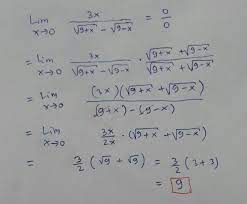 Lim x→0 3x / (√(9+x) − √(9−x)) = 0/0
= Lim x→0 3x / (√(9+x) − √(9−x)) · (√(9+x) + √(9−x)) / (√(9+x) + √(9−x))
= Lim x→0 (3x)(√(9+x) + √(9−x)) / (9+x) − (9−x)
= Lim x→0 3x/2x · (√(9+x) + √(9−x))
= 3/2 (√9 + √9) = 3/2 (3+3)
= 9